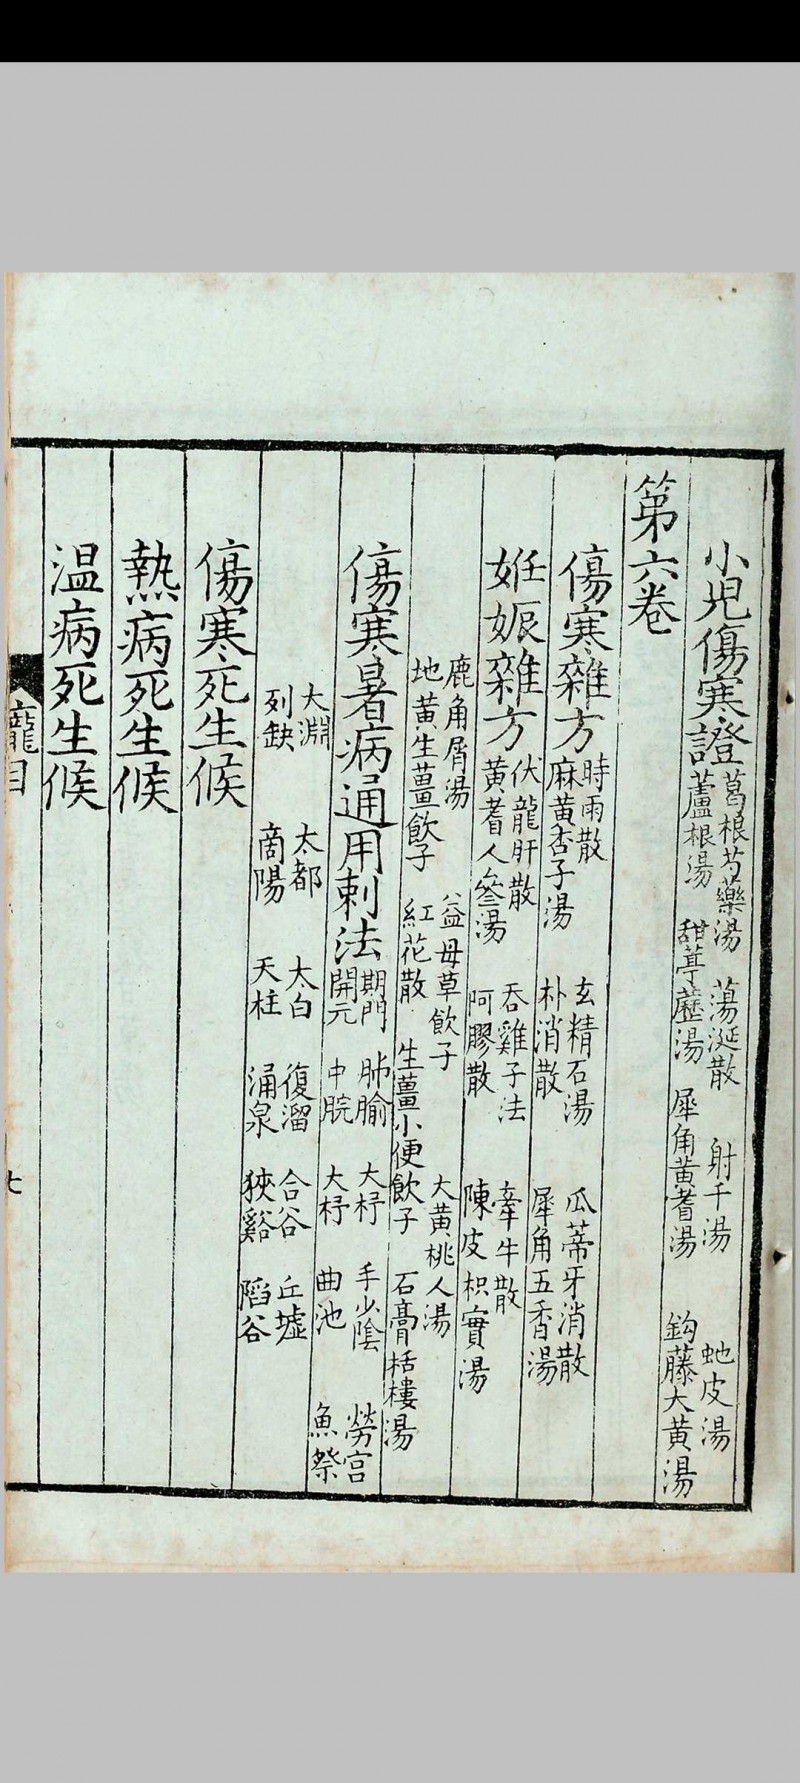 小兒傷寒證
葛根芍藥湯　蕩涎散　射干湯　虵皮湯
蘆根湯　甜葶藶湯　犀角黃耆湯　鈎藤大黃湯
第六卷
傷寒雜方
時雨散　玄精石湯　瓜蒂牙消散
麻黃杏子湯　朴消散　犀角五香湯
妊娠雜方
伏龍肝散　吞雞子法　牽牛散
黃耆人參湯　阿膠散　陳皮枳實湯
鹿角屑湯　益母草飲子　大黃桃人湯
地黃生薑飲子　紅花散　生薑小便飲子　石膏栝樓湯
傷寒暑病通用刺法
期門　肺腧　大杼　手少陰　勞宮
開元　中脘　大杼　曲池　魚祭
大淵　太都　太白　復溜　合谷　丘墟
列缺　商陽　天柱　涌泉　狹谿　陷谷
傷寒死生候
熱病死生候
温病死生候
龐目
七